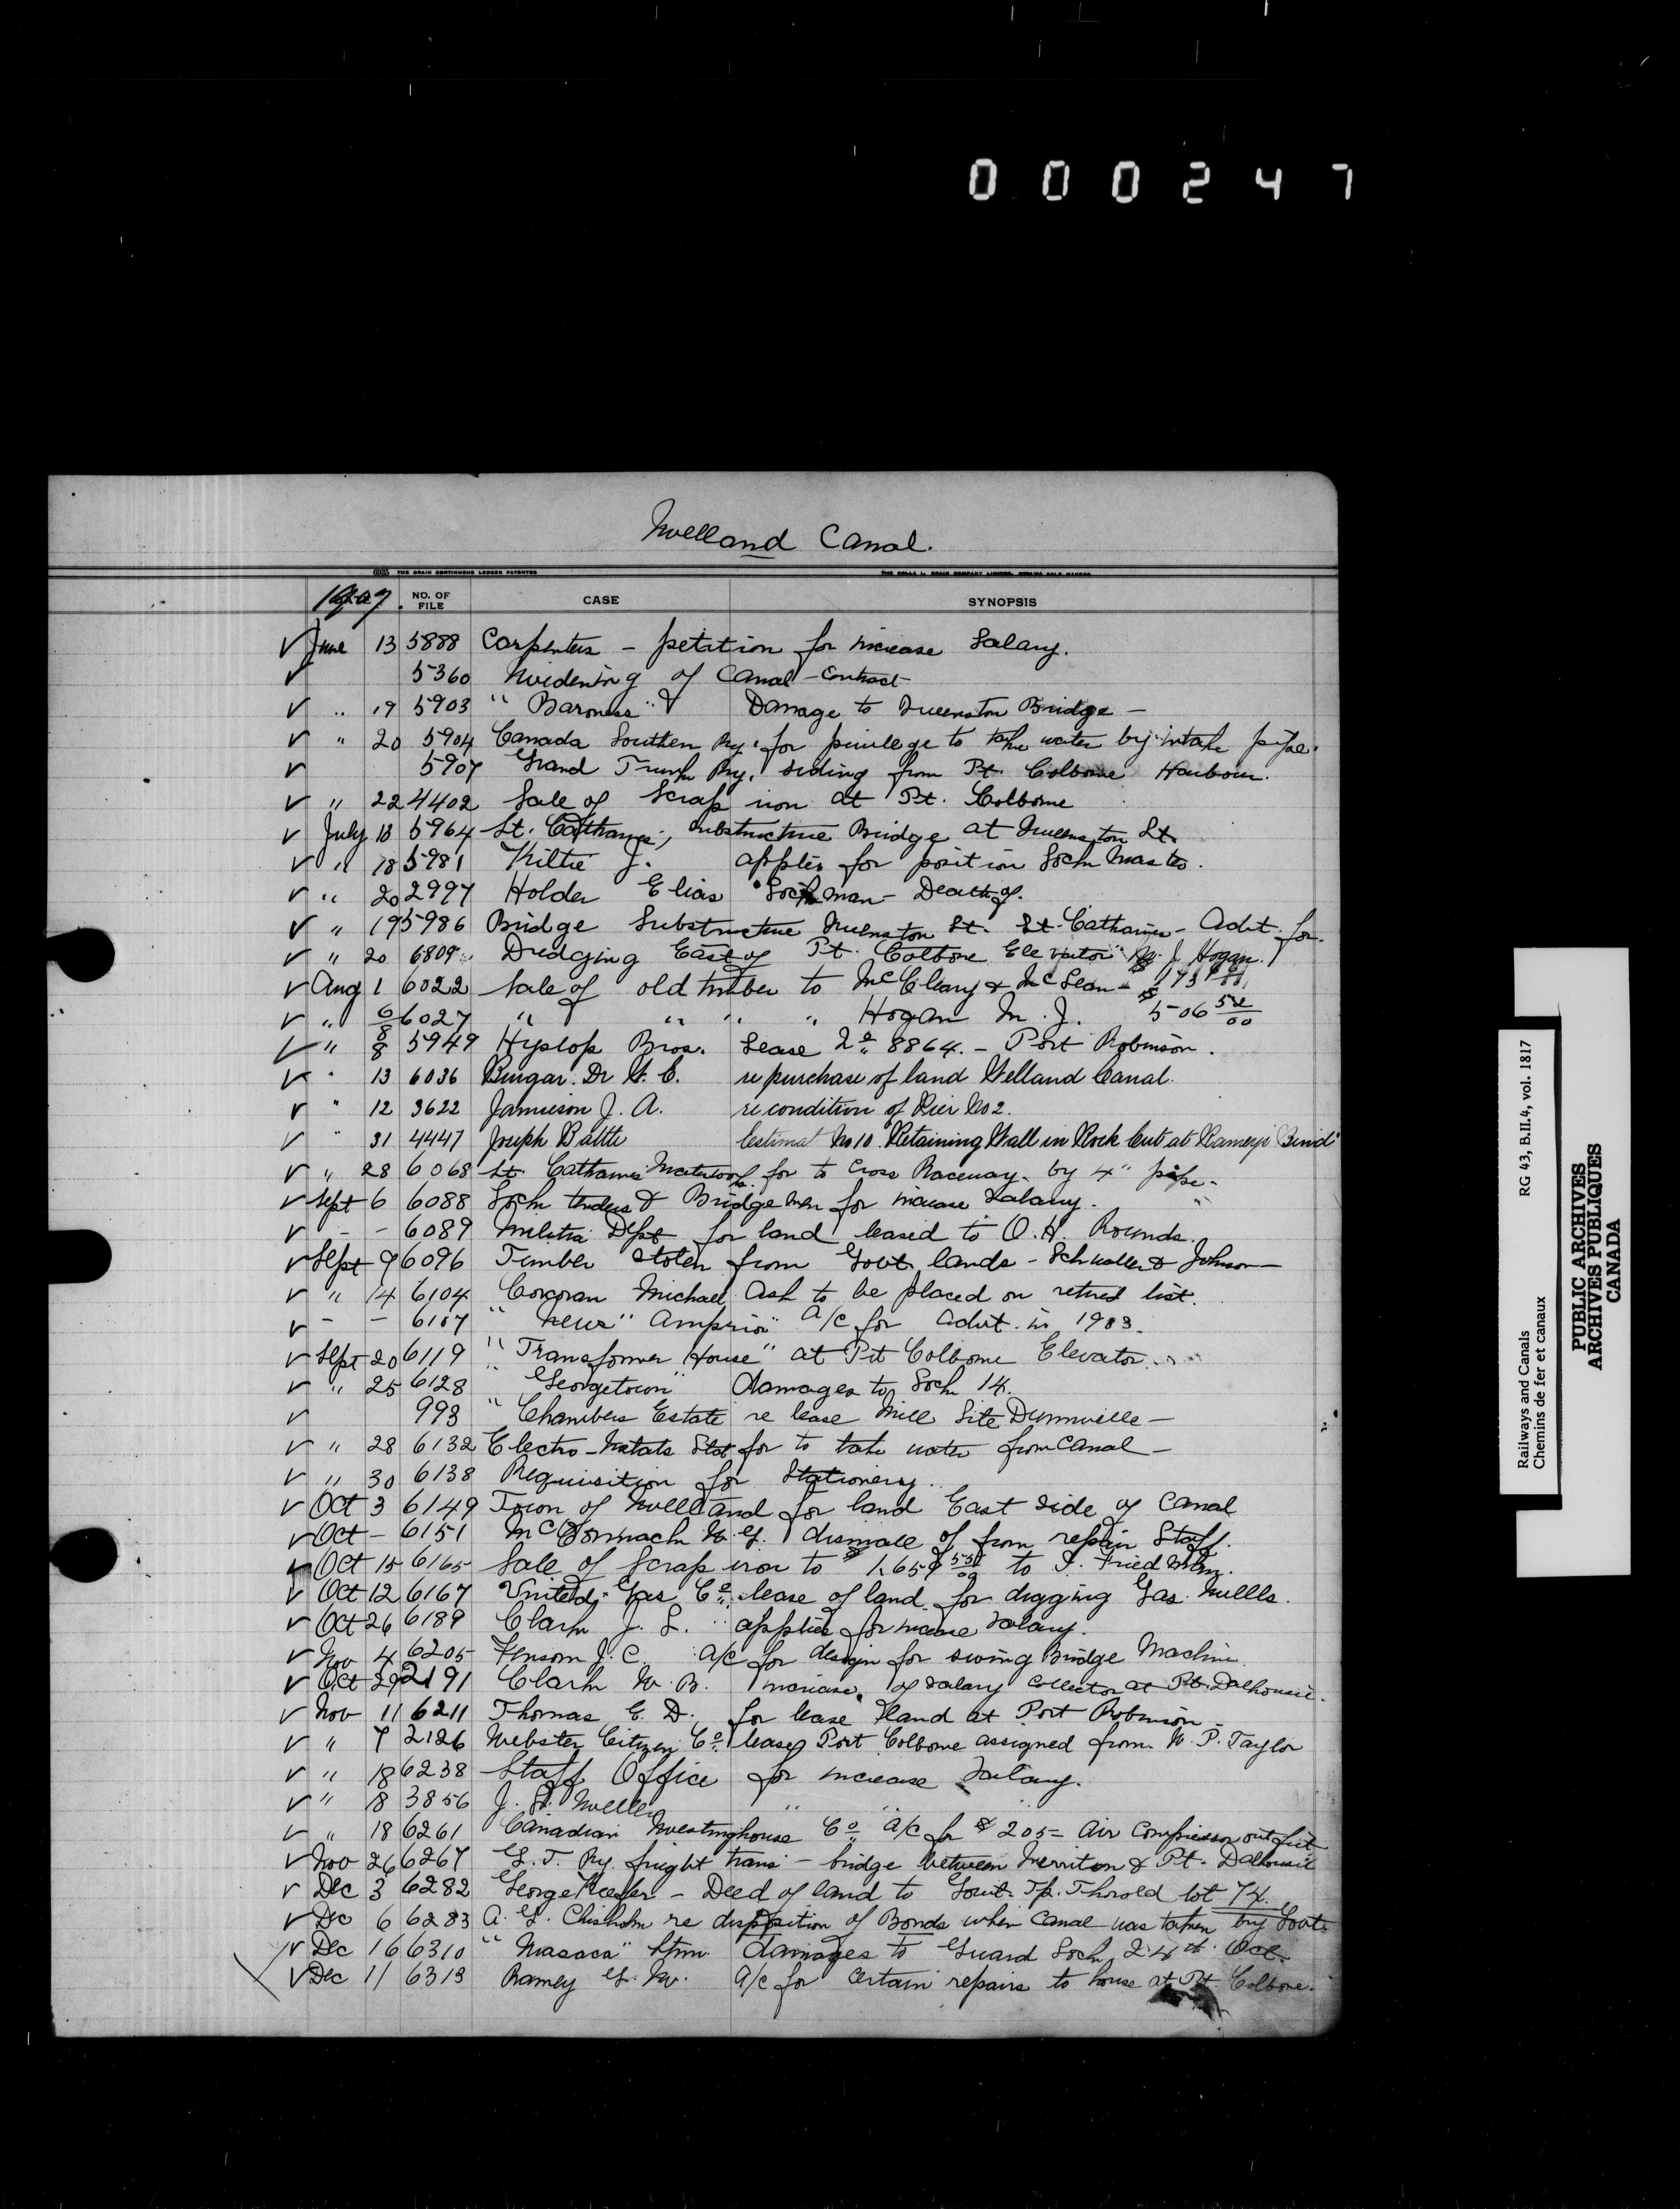 000247
Welland Canal.
THE CRAIN CONTINUOUS LEDGER PATENTED
1907 NO. OF FILE CASE SYNOPSIS
✓ June 13 5888 Carpenters - petition for increase Salary.
✓ 5360 Widening of Canal - Contract
✓ " 19 5903 "Baroness" Damage to Queenston Bridge -
✓ " 20 5904 Canada Southern Ry. for privilege to take water by intake pipe.
✓ 5907 Grand Trunk Ry. siding from Pt. Colborne Harbour.
✓ " 22 4402 Sale of Scrap iron at Pt. Colborne
✓ July 13 5964 St. Catharines, substructure Bridge at Queenston St.
✓ " 18 5981 Kiltie J. applies for position Lock Master.
✓ " 20 2997 Holder Elias Lockman - Death of.
✓ " 19 5986 Bridge Substructure Queenston St. St. Catharines - Advt. for.
✓ " 20 6809 Dredging East of Pt. Colborne Elevator J. Hogan.
✓ Aug 1 6022 Sale of old timber to McCleary & McLean - $
✓ " 6 6027 " " " " Hogan M. J. $506 50/00
✓ " 8 5949 Hyslop Bros. Lease 8864. - Port Robinson.
✓ " 13 6036 Dr re purchase of land Welland Canal.
✓ " 12 3622 Jamieson J. A. re condition of Pier No 2.
✓ " 31 4447 Joseph Battle Estimat No 10. Retaining Wall in Rock Cut at Rameys Bend
✓ " 28 6068 St. Catharines Waterworks. for to cross Raceway. by 4" pipe.
✓ Sept 6 6088 Lock tenders & Bridgemen for increase Salary.
✓ - - 6089 Militia Dept for land leased to O. H. Rounds.
✓ Sept 9 6096 Timber stolen from Govt. lands - Schwaller & Johnson -
✓ " 14 6104 Corcoran Michael Ask to be placed on retired list.
✓ - - 6107 "News" Arnprior a/c for Advt. in 1903.
✓ Sept 20 6119 "Transformer House" at Pt Colborne Elevator.
✓ " 25 6128 "Georgetown" damages to Lock 14.
✓ 993 " Chambers Estate re lease Mill Site Dunnville -
✓ " 28 6132 Electro-Metals for to take water from Canal -
✓ " 30 6138 Requisition for Stationery.
✓ Oct 3 6149 Town of Welland for land East side of Canal
✓ Oct - 6151 McCormack W. G. dismale of from repair Staff.
✓ Oct 15 6165 Sale of Scrap iron to $ 1,659 to I. Friedman.
✓ Oct 12 6167 United Gas Co. lease of land for digging Gas Wells.
✓ Oct 26 6189 Clark J. L. applies for increase salary.
✓ Nov 4 6205 Fensom J. C. a/c for design for swing Bridge Machine
✓ Oct 29 2191 Clark W. B. increase of salary Collector at Pt. Dalhousie.
✓ Nov 11 6211 Thomas E. D. for lease land at Port Robinson -
✓ " 7 2126 Webster Citizen Co. lease Port Colborne assigned from W. P. Taylor
✓ " 18 6238 Staff Office for increase Salary.
✓ " 18 3856 J. L. Weller " " "
✓ " 18 6261 Canadian Westinghouse Co. a/c for $205= Air Compressor outfit
✓ Nov 26 6267 G. T. Ry. freight trans - bridge between Merritton & Pt. Dalhousie
✓ Dec 3 6282 George Keefer - Deed of land to Govt. Tp. Thorold lot 74.
✓ Dec 6 6283 A. G. Chisholm re disposition of Bonds when Canal was taken by Govt.
✓ Dec 16 6310 "Wasaca" Stmr damages to Guard Lock 24th Oct.
✓ Dec 11 6313 Ramey G. W. a/c for certain repairs to house at Pt. Colborne.
Railways and Canals RG 43, B.II.4, vol. 1817
Chemins de fer et canaux
PUBLIC ARCHIVES
ARCHIVES PUBLIQUES
CANADA